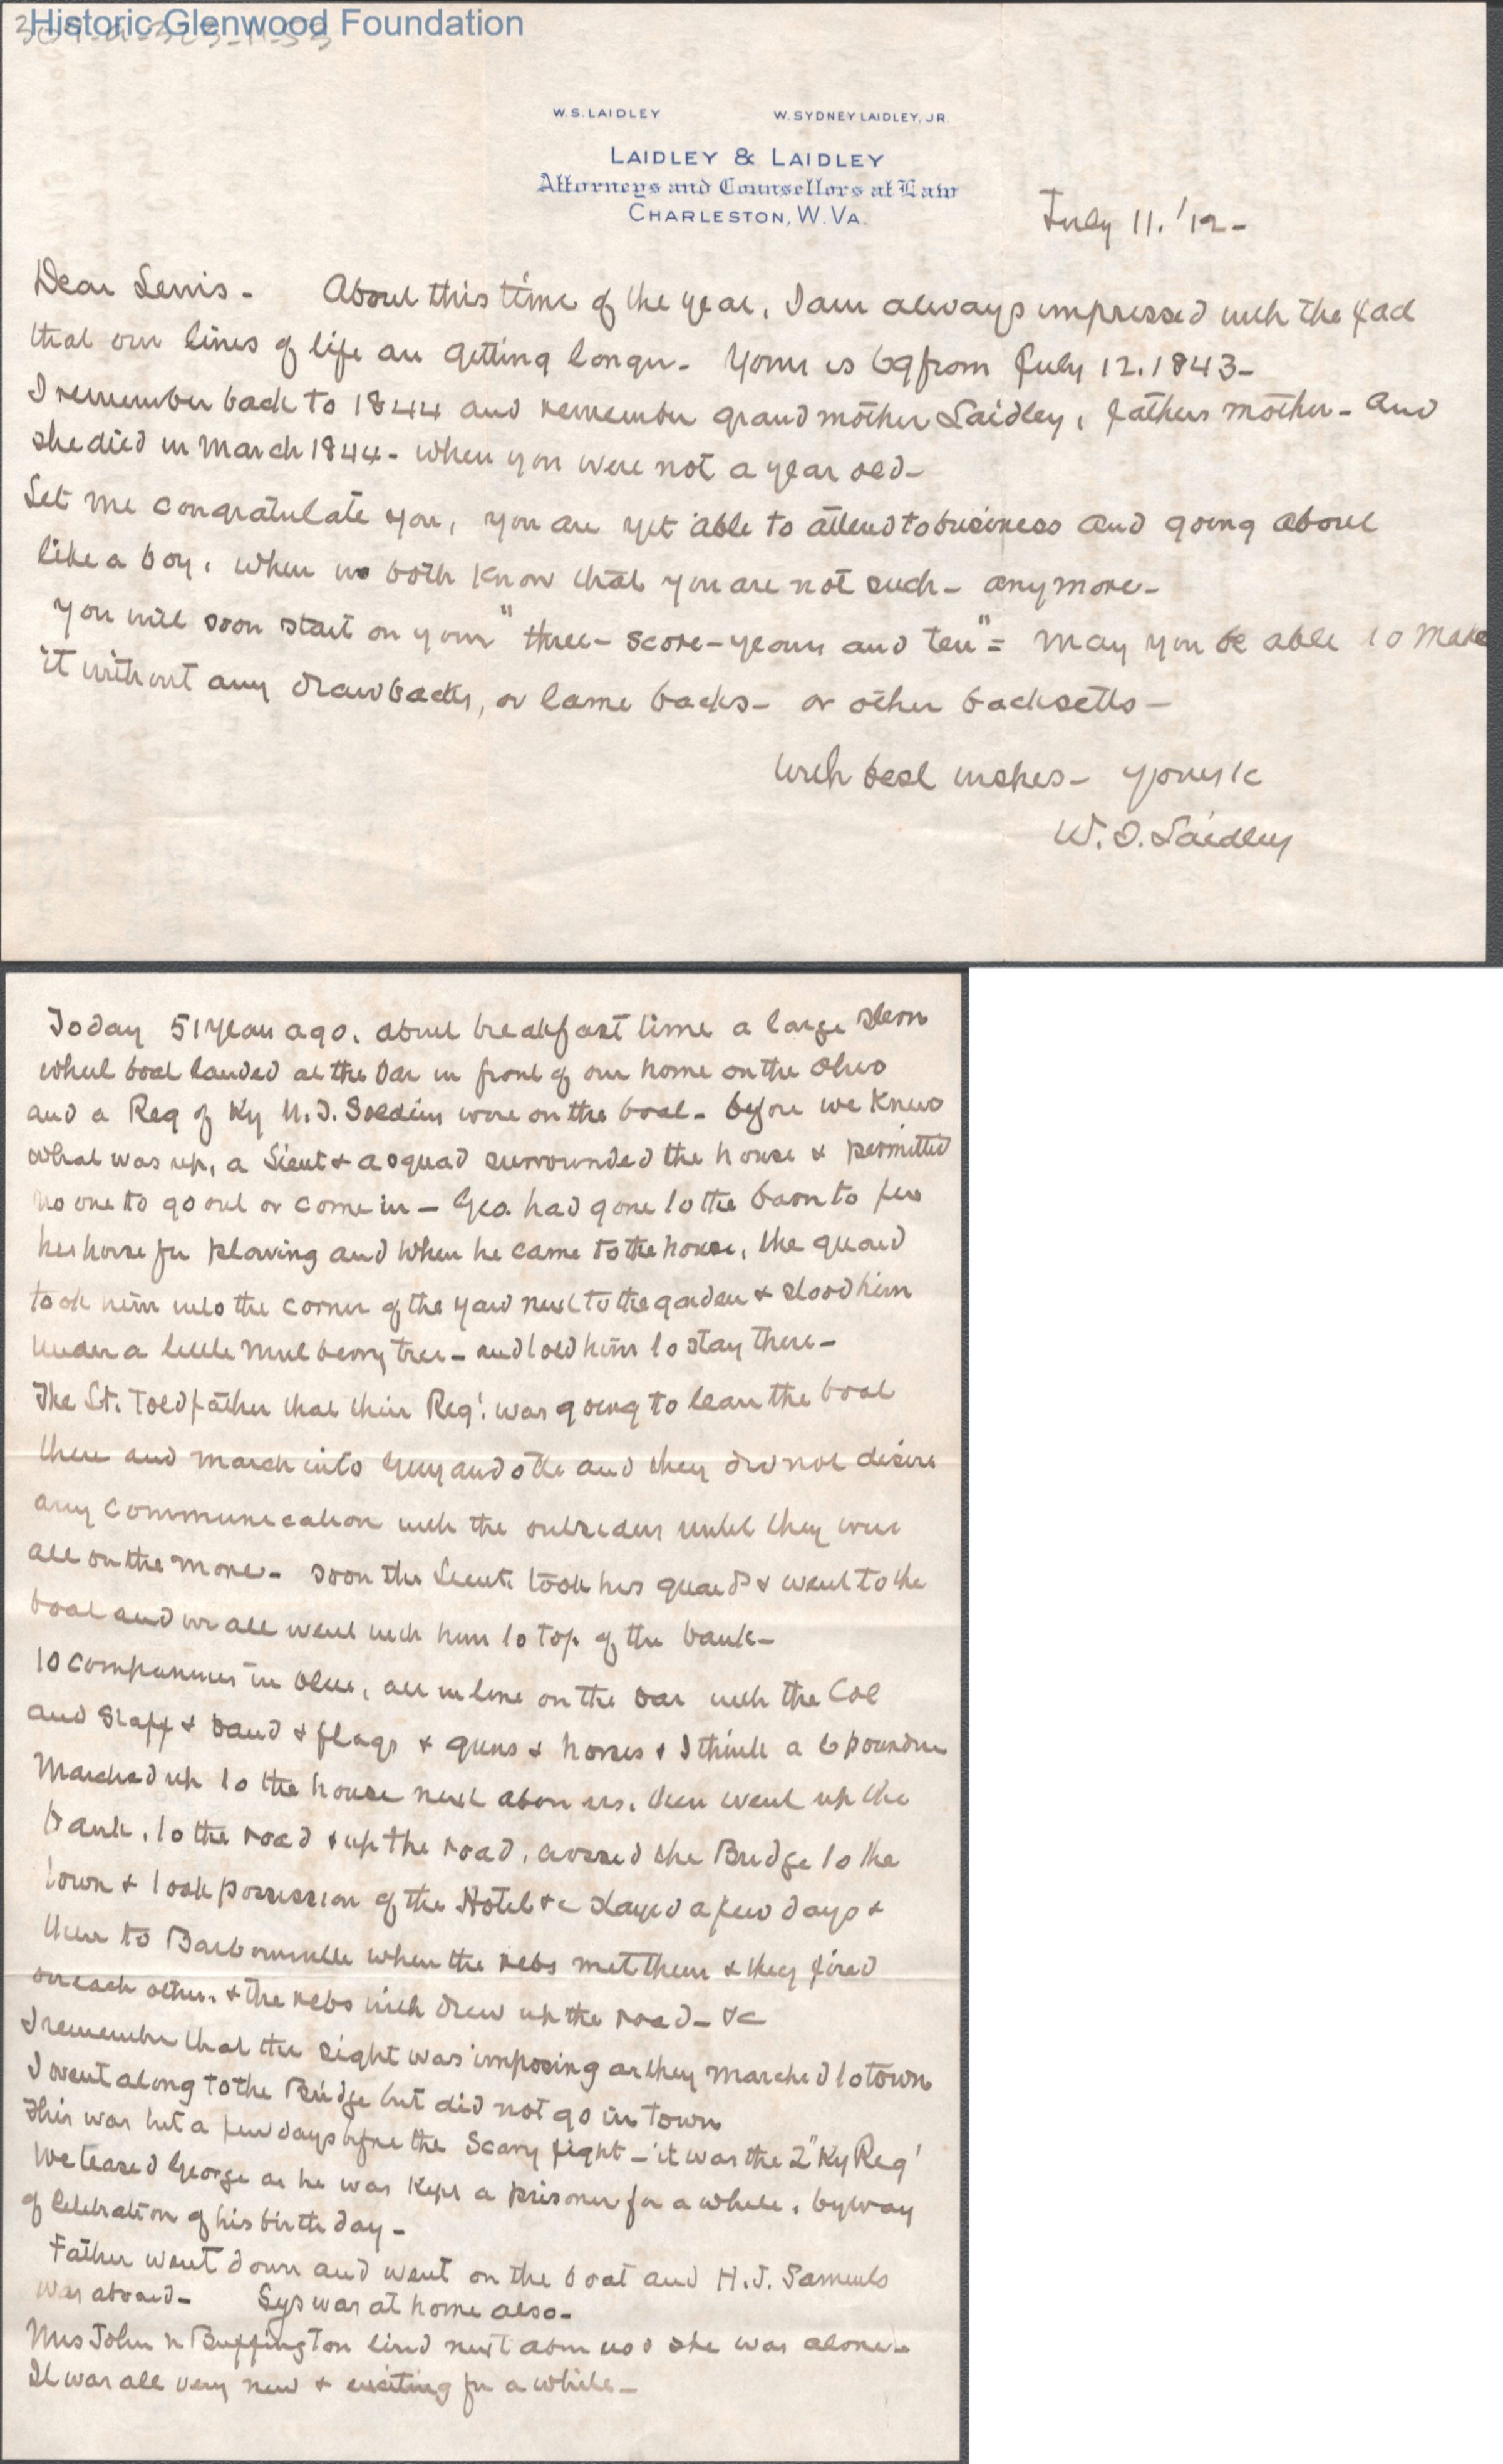 Historic Glenwood Foundation
W.S. LAIDLEY W. SYDNEY LAIDLEY, JR.
LAIDLEY & LAIDLEY
Attorneys and Counsellors at Law
CHARLESTON, W. VA.
July 11. '12-
Dear Lewis - About this time of the year, I am always impressed with the fact
that our lines of life are getting longer - Yours is 69 from July 12. 1843-
I remember back to 1844 and remember grandmother Laidley, fathers mother - and
she died in March 1844 - when you were not a year old-
Let me congratulate you, you are yet able to attend to business and going about
like a boy, when we both know that you are not such - anymore-
You will soon start on your "three-score-years and ten" = may you be able to make
it without any drawbacks, or lame backs - or other backsetts-
With best wishes - yours &c
W. S. Laidley
Today 51 years ago, about breakfast time a large stern
wheel boat landed at the bar in front of our home on the Ohio
and a Reg of Ky U.S. Soldiers were on the boat - before we knew
what was up, a Lieut & a squad surrounded the house & permitted
no one to go out or come in - Geo. had gone to the barn to
his horse for plowing and when he came to the house, the guard
took him into the corner of the yard next to the garden & stood him
under a little mulberry tree - and told him to stay there-
The Lt. told father that their Reg! was going to leave the boat
there and march into Guyandotte and they did not desire
any communication with the outsiders until they were
all on the move - soon the Lieut. took his guard & went to the
boat and we all went with him to top of the bank-
10 companies in blue, all in line on the bar with the Col
and Staff & band & flags & guns & horses & I think a 6 pounder
Marched up to the house next above us, then went up the
bank, to the road & up the road, crossed the Bridge to the
town & took possession of the Hotel &c stayed a few days &
then to Barboursville when the rebs met them & they fired
on each other, & the rebs with drew up the road - &c
I remember that the sight was imposing as they marched to town
I went along to the Bridge but did not go in town
This was but a few days before the Scary fight - it was the 2" Ky Reg'
We teased George as he was kept a prisoner for a while, by way
of Celebration of his birthday-
Father went down and went on the boat and H.J. Samuels
was aboard - Sys was at home also-
Mrs John N Buffington lived next above us & she was alone-
It was all very new & exciting for a while-